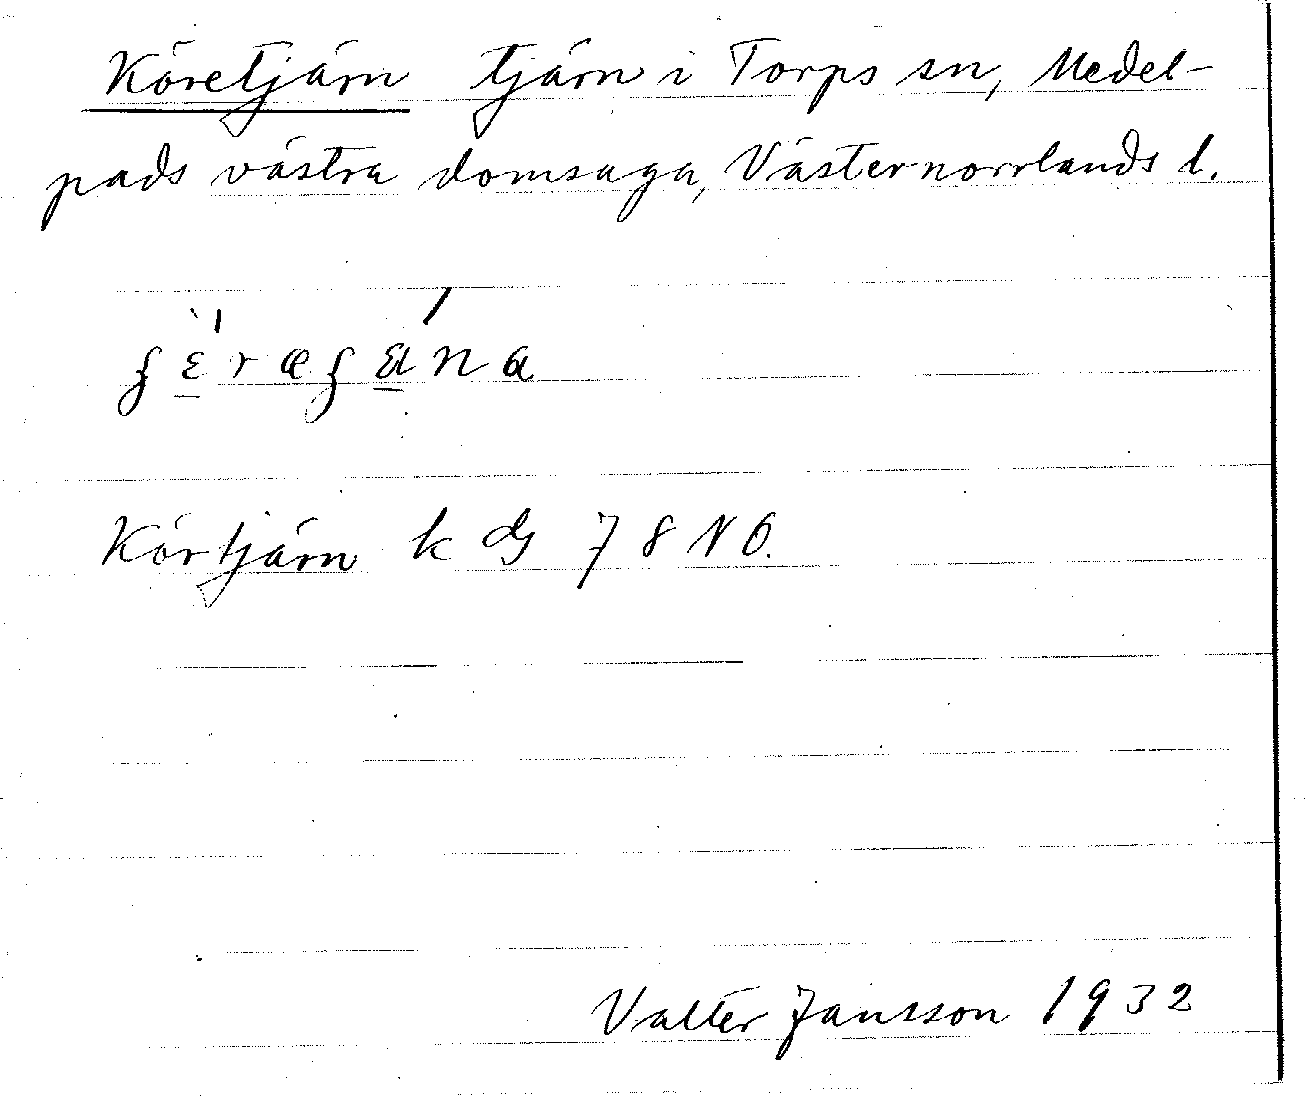 Köretjärn tjärn i Torps sn, Medel-
pads västra domsaga, Västernorrlands l.
Körtjärn k dg 78 NO.
Valter Jansson 1932